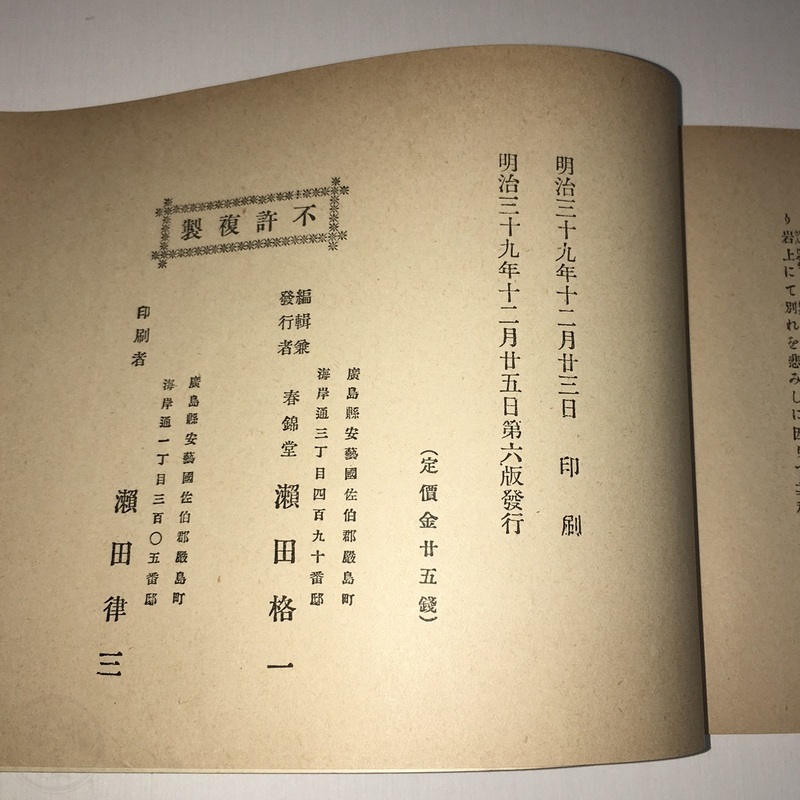 り岩上にて別れを悲みしに因り
明治三十九年十二月廿三日　印　刷
明治三十九年十二月廿五日第六版發行
（定價金廿五錢）
不許複製
廣島縣安藝國佐伯郡嚴島町
海岸通三丁目四百九十番邸
編輯兼
發行者　春錦堂　瀨田格一
廣島縣安藝國佐伯郡嚴島町
海岸通一丁目三百〇五番邸
印刷者　瀨田律三